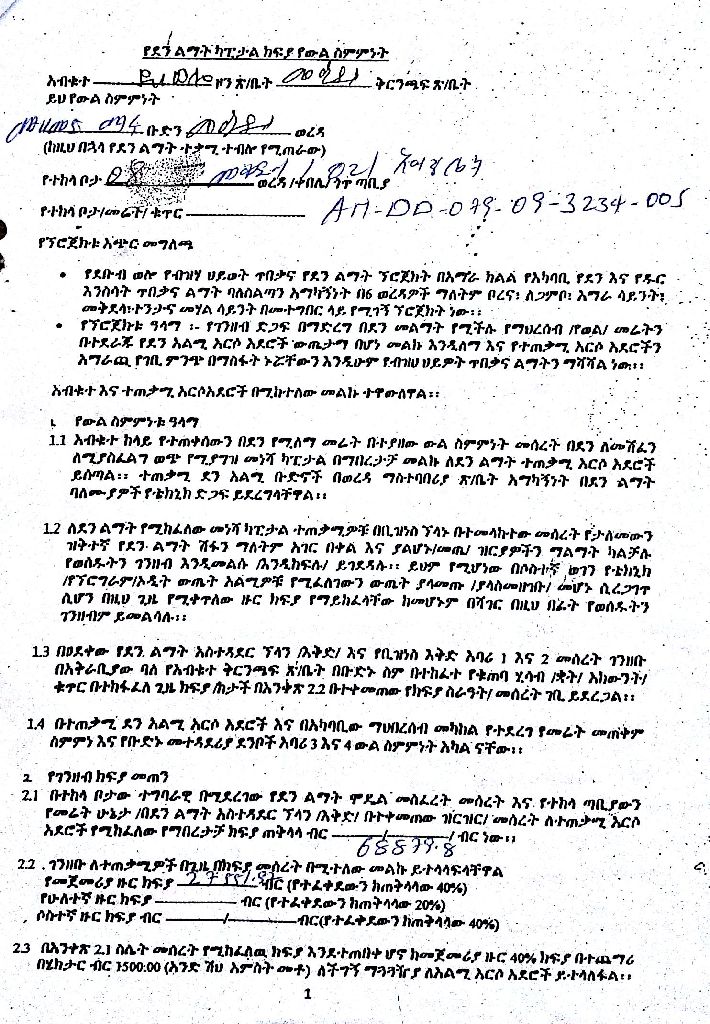 የደን ልማት ካፒታል ክፍያ የውል ስምምነት
አብቁተ ዞን ጽ/ቤት ቅርንጫፍ ጽ/ቤት
ይህ የውል ስምምነት
ቡድን ወረዳ
(ከዚህ በኋላ የደን ልማት ተቃሚ ተብሎ የሚጠራው)
የተከላ ቦታ 08 ወረዳ /ቀበሌ/ ንዋ ጣቢያ
የተከላ ቦታ/መሬት/ ቁጥር AM-DD-079-09-3234-005
የፕሮጀክቱ አጭር መግለጫ
• የደቡብ ወሎ የብዝሃ ሀይወት ጥበቃና የደን ልማት ፕሮጀክት በአማራ ክልል የአካባቢ የደን እና የዱር
እንስሳት ጥበቃና ልማት ባለስልጣን አማካኝነት በ6 ወረዳዎች ማለትም ቦረና፣ ለጋምቦ፣ አማራ ሳይንት፣
መቅደላ፣ተንታና መሃል ሳይንት በመተግበር ላይ የሚገኝ ፕሮጀክት ነው፡፡
• የፕሮጀክቱ ዓላማ ፡- የገንዘብ ድጋፍ በማድረግ በደን መልማት የሚችሉ የማህረሰብ /የወል/ መሬትን
በተደራጁ የደን አልሚ አርሶ አደሮች ውጤታማ በሆነ መልኩ እንዲለማ እና የተጠቃሚ አርሶ አደሮችን
አማራጪ የገቢ ምንጭ በማስፋት ኑሯቸውን እንዲሁም የብዝሀ ህይዎት ጥበቃና ልማትን ማሻሻል ነው፡፡
አብቁተ እና ተጠቃሚ አርሶአደሮች በሚከተለው መልኩ ተዋውለዋል፡፡
1. የውል ስምምነቱ ዓላማ
1.1 አብቁተ ከላይ የተጠቀሰውን በደን የሚለማ መሬት በተያዘው ውል ስምምነት መሰረት በደን ለመሸፈን
ለሚያስፈልግ ወጭ የሚያግዝ መነሻ ካፒታል በማበረታቻ መልኩ ለደን ልማት ተጠቃሚ አርሶ አደሮች
ይሰጣል፡፡ ተጠቃሚ ደን አልሚ ቡድኖች በወረዳ ማስተባበሪያ ጽ/ቤት አማካኝነት በደን ልማት
ባለሙያዎች የቴክኒክ ድጋፍ ይደረግላቸዋል፡፡
1.2 ለደን ልማት የሚከፈለው መነሻ ካፒታል ተጠቃሚዎቹ በቢዝነስ ፕላኑ በተመላከተው መሰረት የታለመውን
ዝቅተኛ የደን ልማት ሽፋን ማለትም አገር በቀል እና ያልሆኑ/መጤ/ ዝርያዎችን ማልማት ካልቻሉ
የወሰዱትን ገንዘብ እንዲመልሱ /እንዲከፍሉ/ ይገደዳሉ፡፡ ይህም የሚሆነው በሶስተኛ ወገን የቴክኒክ
/የፕሮግራም/ኦዲት ውጤት አልሚዎቹ የሚፈለገውን ውጤት ያላመጡ /ያላስመዘገቡ/ መሆኑ ሲረጋገጥ
ሲሆን በዚህ ጊዜ የሚቀጥለው ዙር ክፍያ የማይከፈላቸው ከመሆኑም በሻገር በዚህ በፊት የወሰዱትን
ገንዘብም ይመልሳሉ፡፡
1.3 በፀደቀው የደን ልማት አስተዳደር ፕላን /እቅድ/ እና የቢዝነስ እቅድ አባሪ 1 እና 2 መሰረት ገንዘቡ
በአቅራቢያው ባለ የአብቁተ ቅርንጫፍ ጽ/ቤት በቡድኑ ስም በተከፈተ የቁጠባ ሂሳብ /ቋት/ አካውንት/
ቁጥር በተከፋፈለ ጊዜ ክፍያ /ከታች በአንቀጽ 2.2 በተቀመጠው የክፍያ ስራዓት/ መሰረት ገቢ ይደረጋል፡፡
1.4 በተጠቃሚ ደን አልሚ አርሶ አደሮች እና በአካባቢው ማህበረሰብ መካከል የተደረገ የመሬት መጠቀም
ስምምነ እና የቡድኑ መተዳደሪያ ደንቦች አባሪ 3 እና 4 ውል ስምምነት አካል ናቸው፡፡
2. የገንዘብ ክፍያ መጠን
2.1 በተከላ ቦታው ተግባራዊ በሚደረገው የደን ልማት ሞዴል መስፈረት መሰረት እና የተከላ ጣቢያውን
የመሬት ሁኔታ /በደን ልማት አስተዳደር ፕላን /እቅድ/ በተቀመጠው ዝርዝር/ መሰረት ለተጠቃሚ አርሶ
አደሮች የሚከፈለው የማበረታቻ ክፍያ ጠቅላላ ብር / / ብር ነው፡፡
68879.8
2.2 . ገንዘቡ ለተጠቃሚዎች በጊዜ በክፍያ መሰረት በሚተለው መልኩ ይተላለፍላቸዋል
የመጀመሪያ ዙር ክፍያ 27551.92 ብር (የተፈቀደውን ከጠቅላላው 40%)
የሁለተኛ ዙር ክፍያ ብር (የተፈቀደውን ከጠቅላላው 20%)
ሶስተኛ ዙር ክፍያ ብር / ብር(የተፈቀደውን ከጠቅላላው 40%)
2.3 በአንቀጽ 2.1 ስሌት መሰረት የሚከፈለዉ ክፍያ እንደተጠበቀ ሆኖ ከመጀመሪያ ዙር 40% ክፍያ በተጨማሪ
በሄክታር ብር 1500:00 (አንድ ሽህ አምስት መቶ) ለችግኝ ማጓጓዥያ ለአልሚ አርሶ አደሮች ይተላለፋል፡፡
1